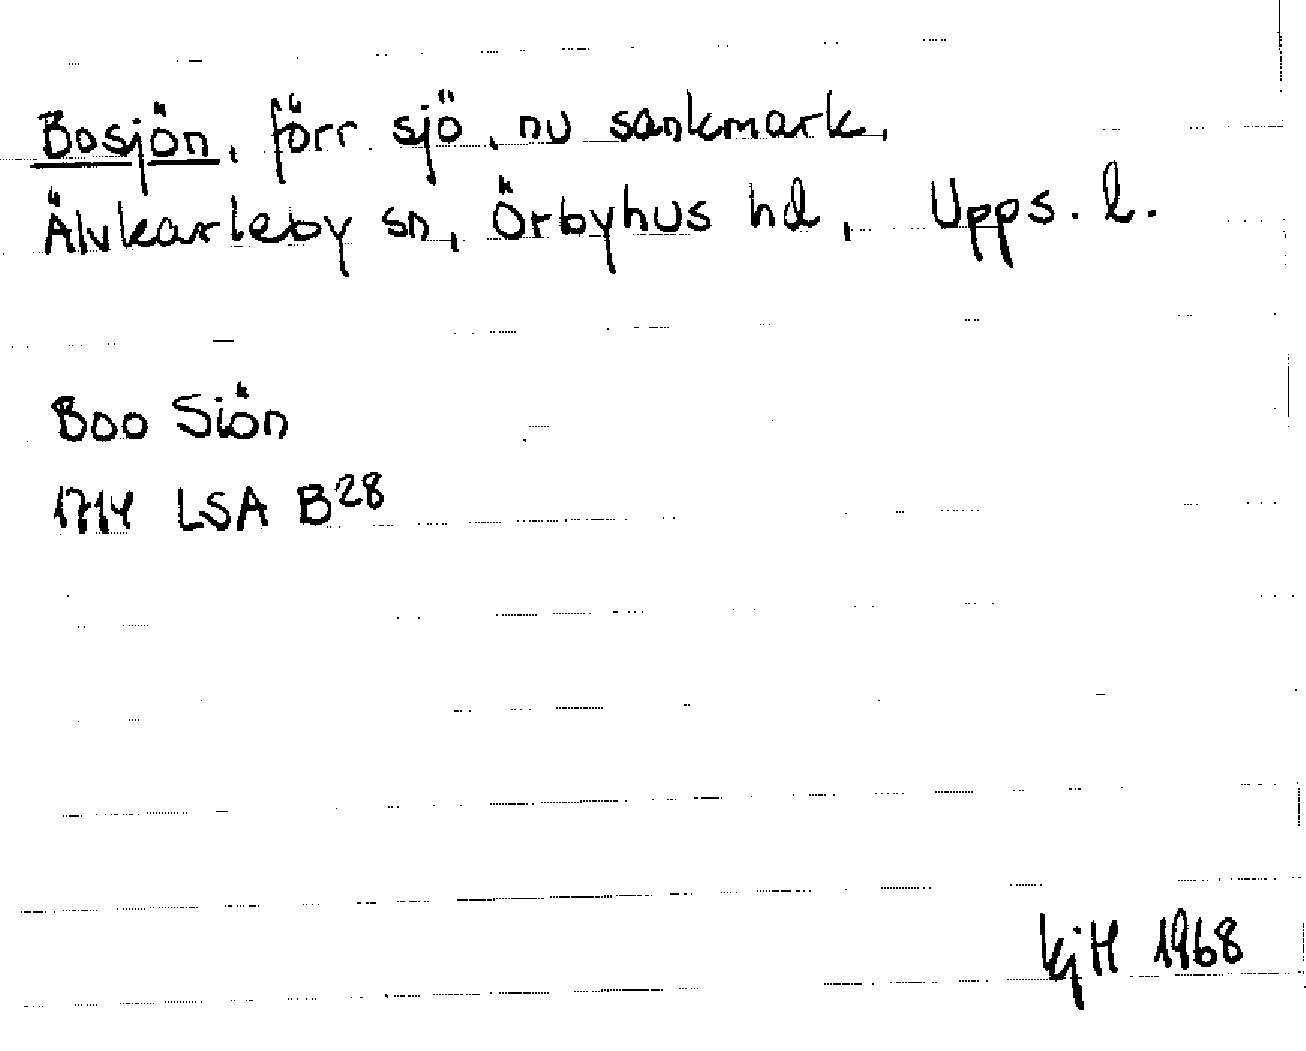 Bosjön, förr sjö, nu sankmark,
Älvkarleby sn, Örbyhus hd, Upps. l.
Boo Siön
1714 LSA B28
KjH 1968